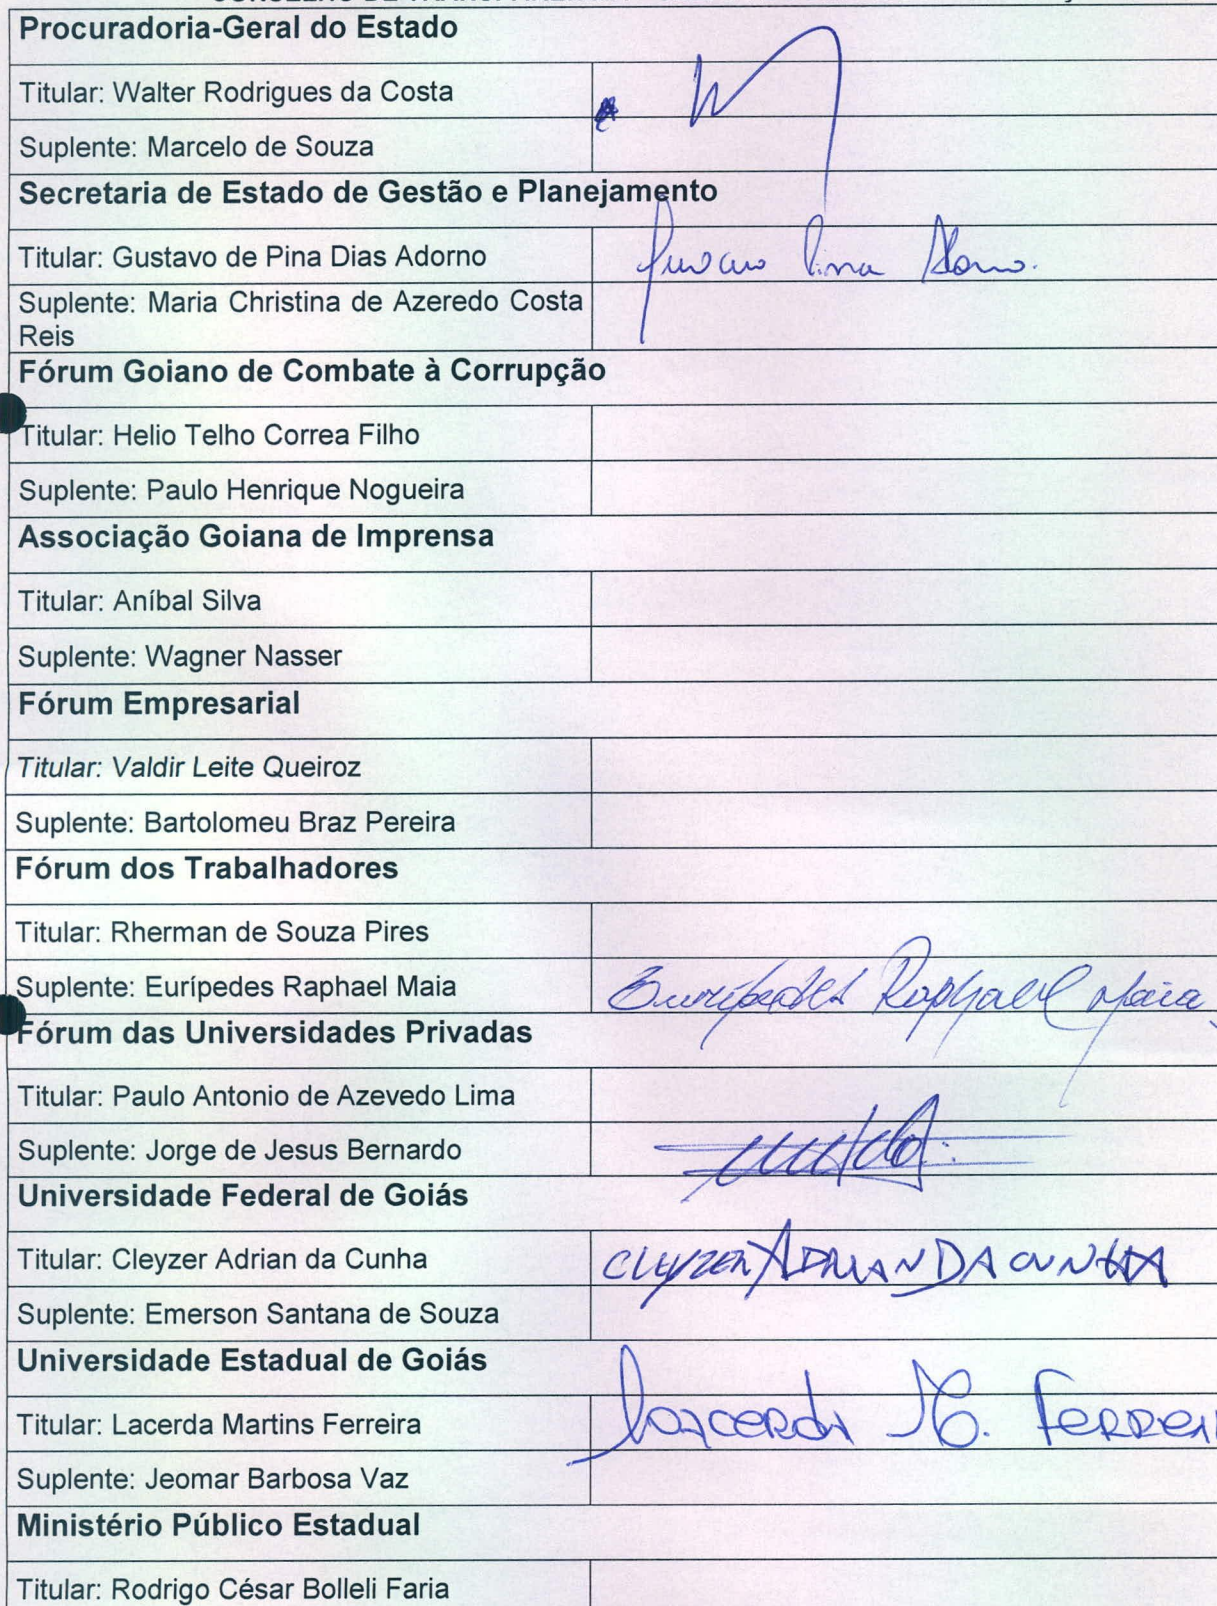 Procuradoria-Geral do Estado
Titular: Walter Rodrigues da Costa
Suplente: Marcelo de Souza
Secretaria de Estado de Gestão e Planejamento
Titular: Gustavo de Pina Dias Adorno
Suplente: Maria Christina de Azeredo Costa
Reis
Fórum Goiano de Combate à Corrupção
Titular: Helio Telho Correa Filho
Suplente: Paulo Henrique Nogueira
Associação Goiana de Imprensa
Titular: Aníbal Silva
Suplente: Wagner Nasser
Fórum Empresarial
Titular: Valdir Leite Queiroz
Suplente: Bartolomeu Braz Pereira
Fórum dos Trabalhadores
Titular: Rherman de Souza Pires
Suplente: Eurípedes Raphael Maia
Euripedes Raphael Maia
Fórum das Universidades Privadas
Titular: Paulo Antonio de Azevedo Lima
Suplente: Jorge de Jesus Bernardo
Universidade Federal de Goiás
Titular: Cleyzer Adrian da Cunha
CLEYZER ADRIAN DA CUNHA
Suplente: Emerson Santana de Souza
Universidade Estadual de Goiás
Titular: Lacerda Martins Ferreira
Lacerda M. Ferrei
Suplente: Jeomar Barbosa Vaz
Ministério Público Estadual
Titular: Rodrigo César Bolleli Faria